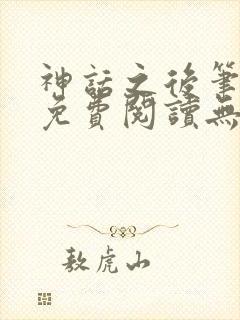 神話之後筆
免費閱讀無
敖虎山